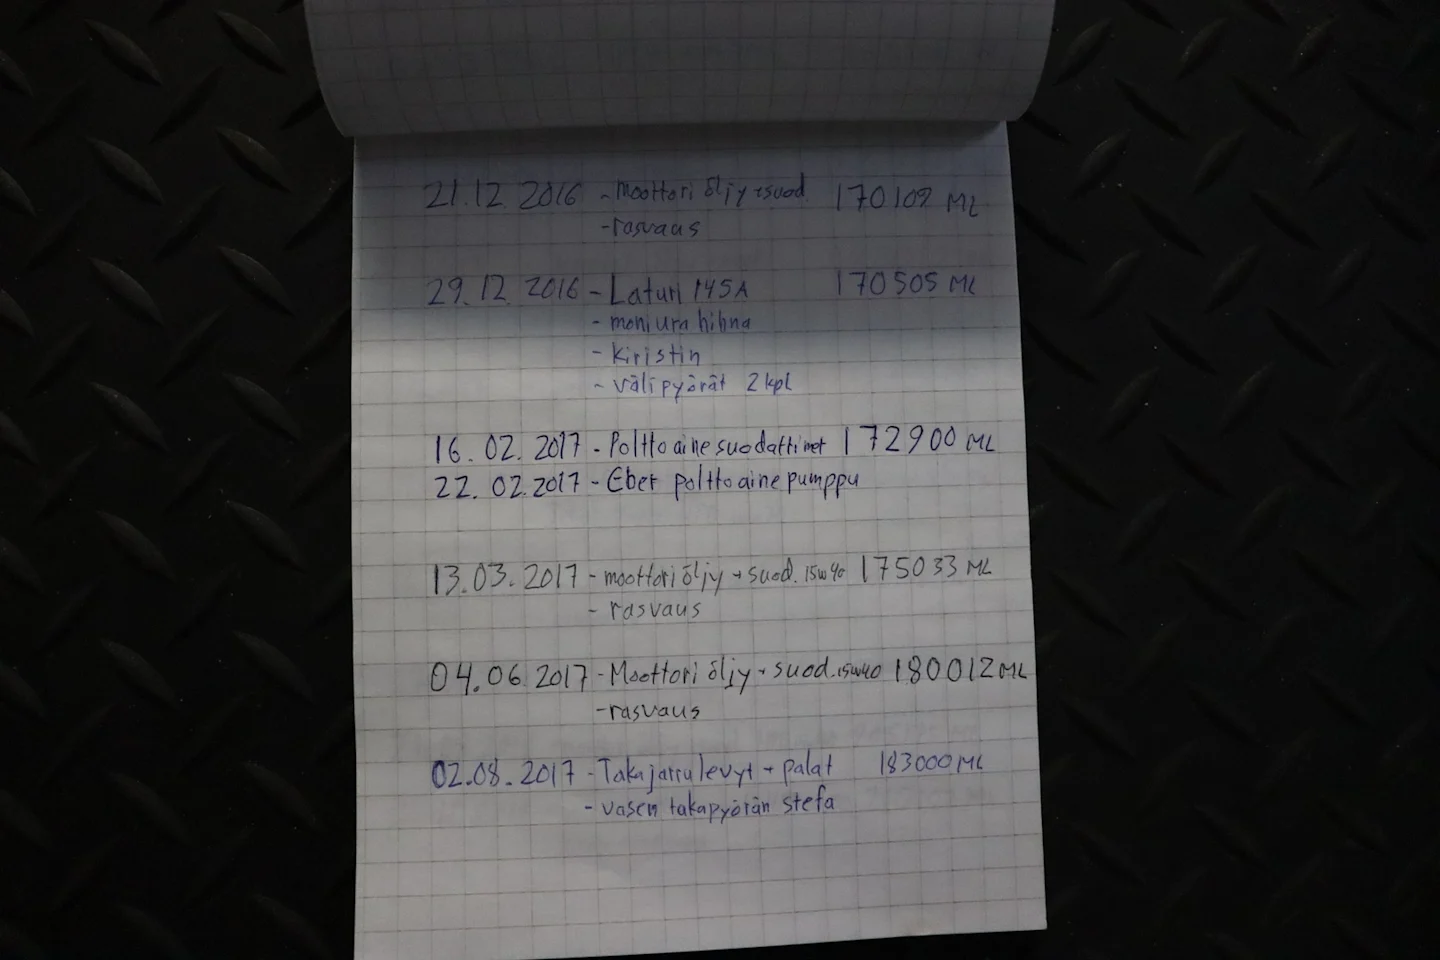 21.12.2016 - Moottori öljy + suod. 170109 ML
- rasvaus
29.12.2016 - Laturi 145A 170505 ML
- moniura hihna
- kiristin
- välipyörät 2 kpl
16.02.2017 - Polttoaine suodattimet 172900 ML
22.02.2017 - Eber polttoaine pumppu
13.03.2017 - moottori öljy + suod. 15w40 175033 ML
- rasvaus
04.06.2017 - Moottori öljy + suod. 15w40 180012 ML
- rasvaus
02.08.2017 - Taka jarru levyt + palat 183000 ML
- vasen takapyörän stefa